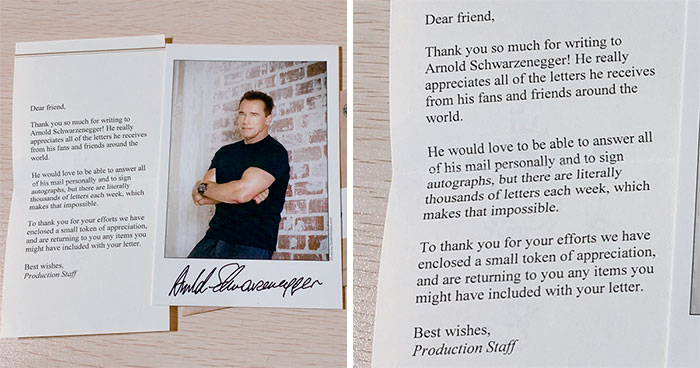 Dear friend,
Thank you so much for writing to
Arnold Schwarzenegger! He really
appreciates all of the letters he receives
from his fans and friends around the
world.
He would love to be able to answer all
of his mail personally and to sign
autographs, but there are literally
thousands of letters each week, which
makes that impossible.
To thank you for your efforts we have
enclosed a small token of appreciation,
and are returning to you any items you
might have included with your letter.
Best wishes,
Production Staff
Arnold Schwarzenegger
Dear friend,
Thank you so much for writing to
Arnold Schwarzenegger! He really
appreciates all of the letters he receives
from his fans and friends around the
world.
He would love to be able to answer all
of his mail personally and to sign
autographs, but there are literally
thousands of letters each week, which
makes that impossible.
To thank you for your efforts we have
enclosed a small token of appreciation,
and are returning to you any items you
might have included with your letter.
Best wishes,
Production Staff